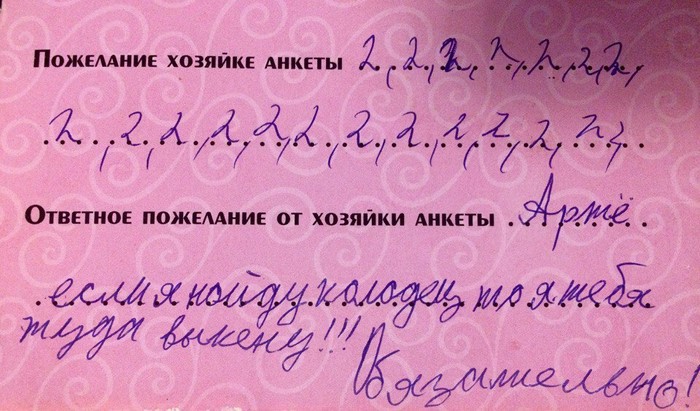 Пожелание хозяйке анкеты 2, 2, 2, 2, 2, 2, 2,
2, 2, 2, 2, 2, 2, 2, 2, 2, 2, 2, 2,
Ответное пожелание от хозяйки анкеты Артё
если я нойду колодец то я тебя
туда выкену!!!
Обязательно!